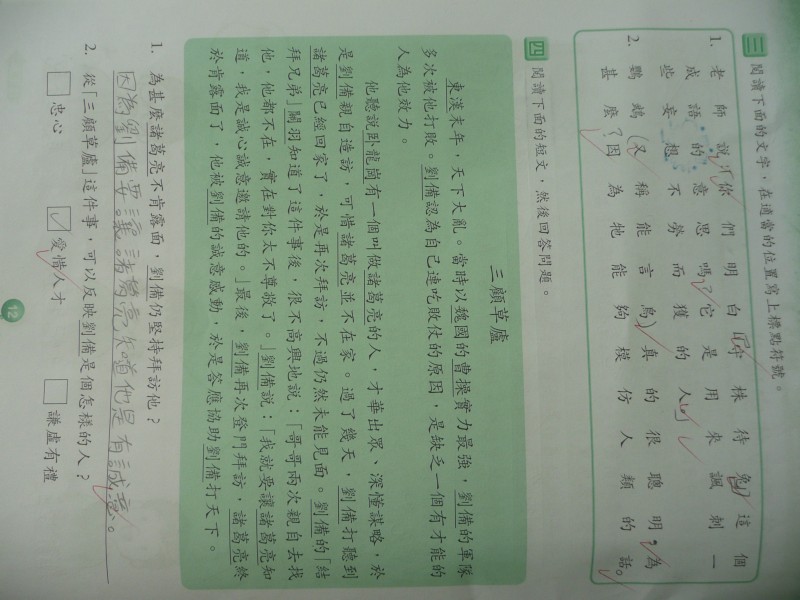 三 閱讀下面的文字，在適當的位置寫上標點符號。
1. 老師說：「你們明白『守株待兔』這個
成語的意思嗎？它是用來諷刺一
些妄想不勞而獲的人。」
2. 鸚鵡（又稱能言鳥）真的很聰明，為
甚麼？因為牠能夠模仿人類的話。
四 閱讀下面的短文，然後回答問題。
三顧草廬
東漢末年，天下大亂。當時以魏國的曹操實力最強，劉備的軍隊
多次被他打敗。劉備認為自己連吃敗仗的原因，是缺乏一個有才能的
人為他效力。
他聽說臥龍崗有一個叫做諸葛亮的人，才華出眾、深懂謀略，於
是劉備親自造訪，可惜諸葛亮並不在家。過了幾天，劉備打聽到
諸葛亮已經回家了，於是再次拜訪，不過仍然未能見面。劉備的「結
拜兄弟」關羽知道了這件事後，很不高興地說：「哥哥兩次親自去找
他，他都不在，實在對你太不尊敬了。」劉備說：「我就要讓諸葛亮知
道，我是誠心誠意邀請他的。」最後，劉備再次登門拜訪，諸葛亮終
於肯露面了，他被劉備的誠意感動，於是答應協助劉備打天下。
1. 為甚麼諸葛亮不肯露面，劉備仍堅持拜訪他？
因為劉備要讓諸葛亮知道他是有誠意。
2. 從「三顧草廬」這件事，可以反映劉備是個怎樣的人？
忠心 ✓ 愛惜人才 謙虛有禮
12